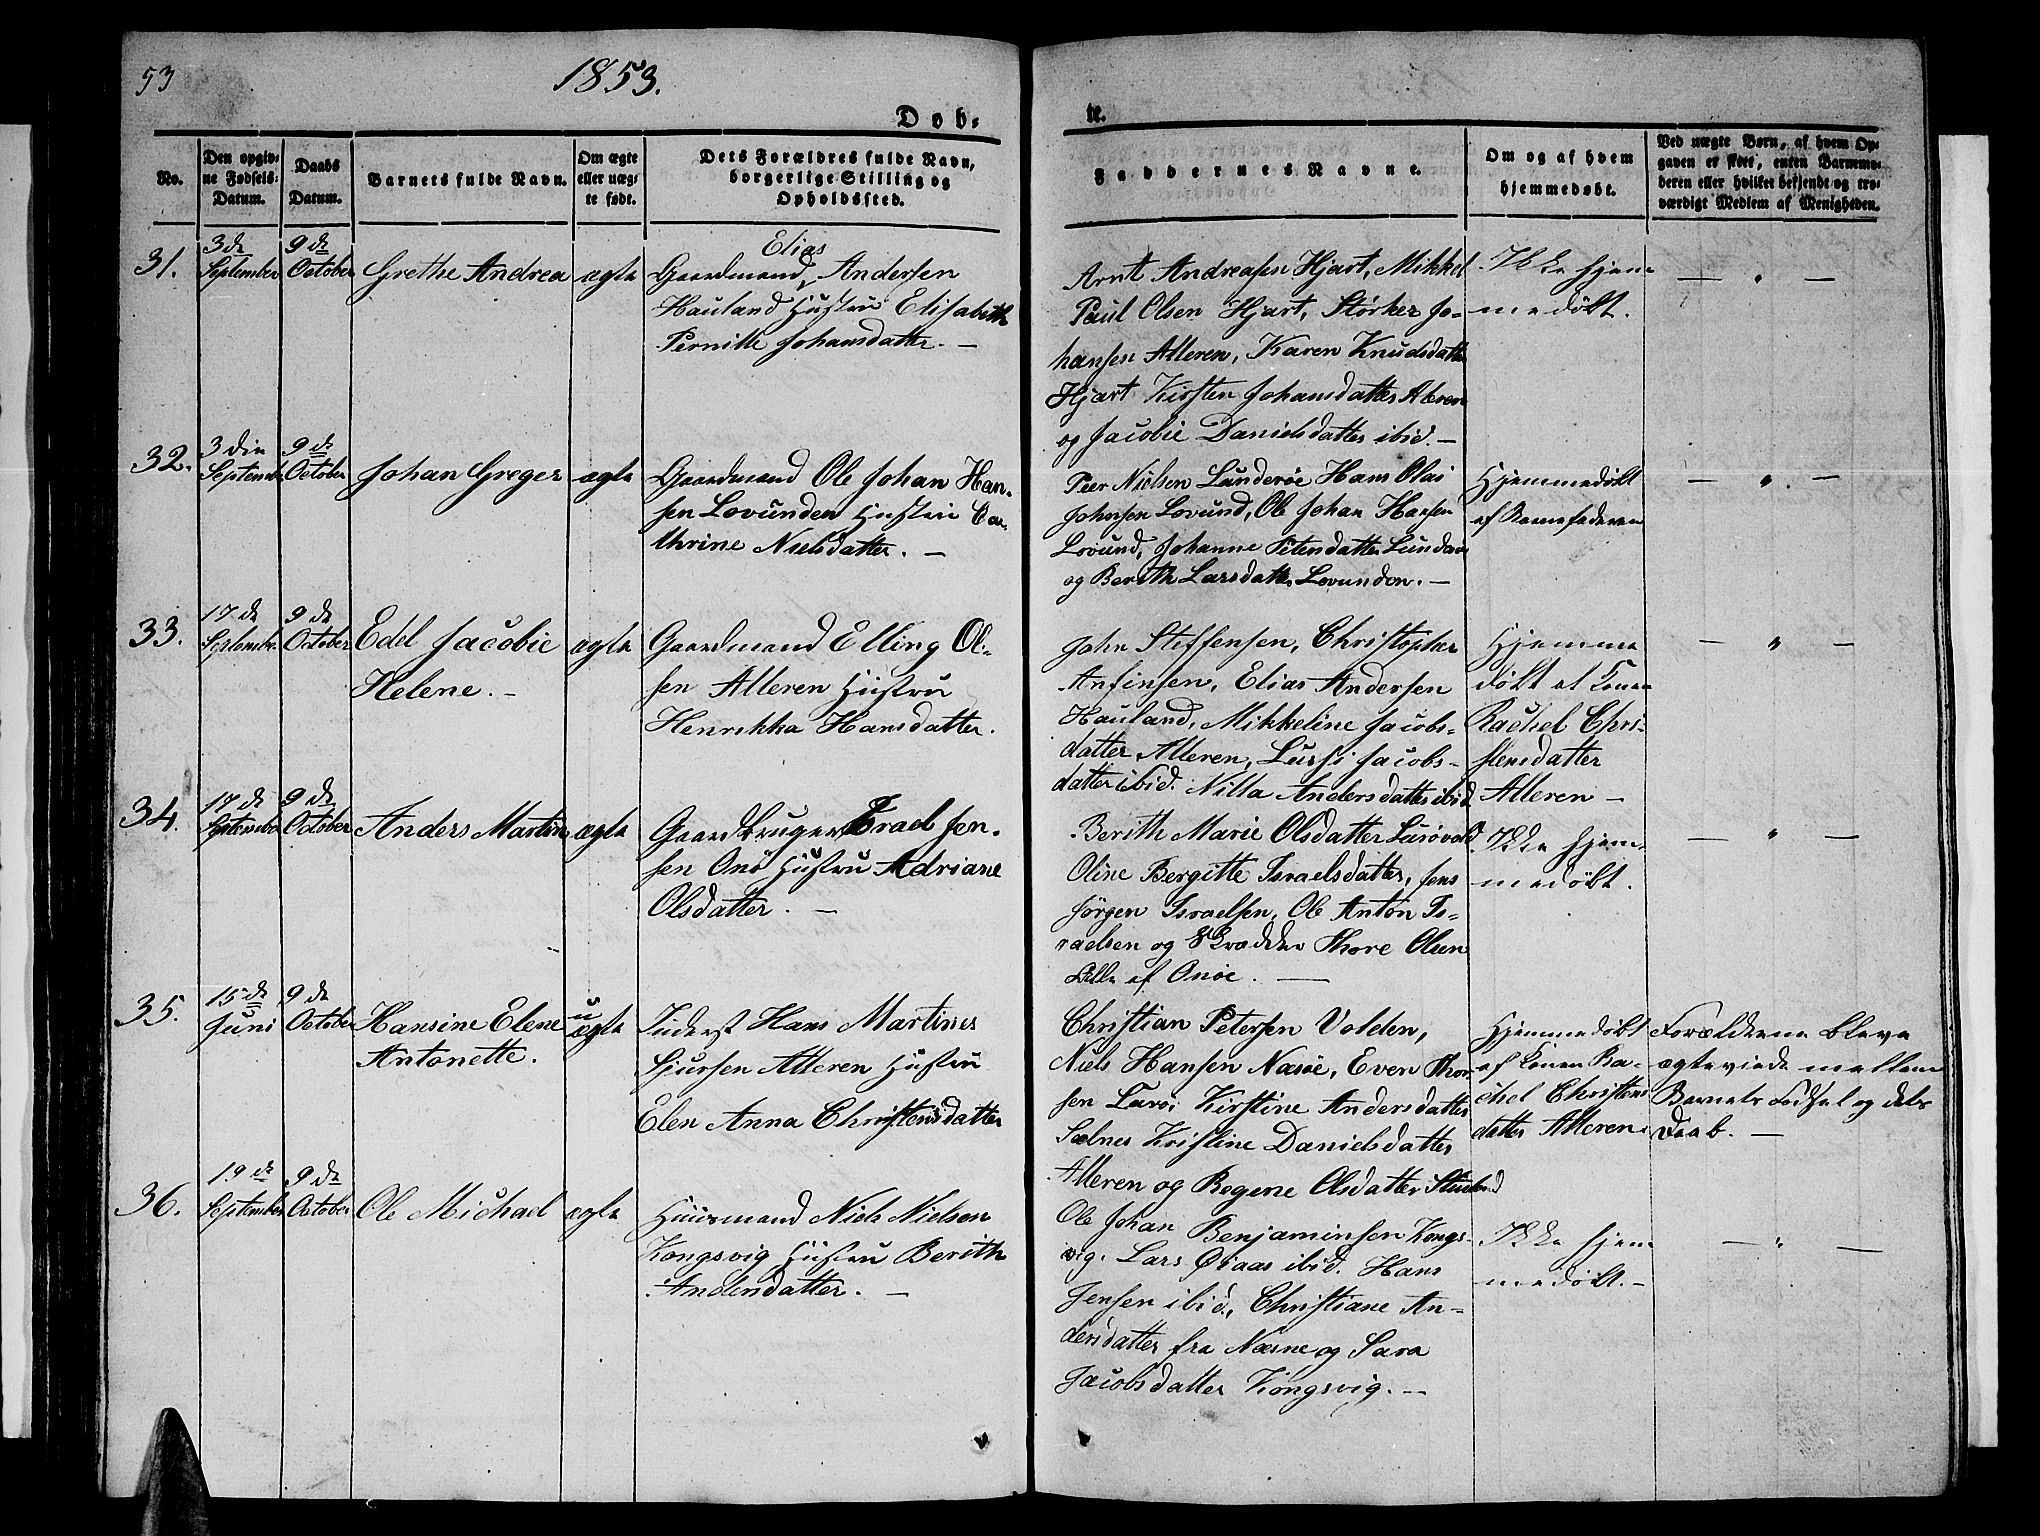 53
1853.
Døb-
te.
No.
Den opgiv-
ne Fødsels-
Datum.
Daabs
Datum.
Barnets fulde Navn.
Om ægte
eller uæg-
te født.
Dets Forældres fulde Navn,
borgerlige Stilling og
Opholdssted.
Faddernes Navne.
Om og af hvem
hjemmedøbt.
Ved uægte Børn, af hvem Op-
gaven er skeet, enten Barnemo-
deren eller hvilket bekjendt og tro-
værdigt Medlem af Menigheden.
31.
3de
September
9de
October
Grethe Andrea
ægte
Elias
Gaardmand, Andersen
Hauland Hustru Elisabeth
Pernille Johansdatter. —
Arnt Andreasen Hjart, Mikkel
Paul Olsen Hjart, Størker Jo-
hansen Alleren, Karen Knudsdatter
Hjart Kirsten Johansdatter
og Jacobie Danielsdatter ibid. —
Ikke hjem
medøbt.
— " —
32.
3die
Septemb
9de
October
Johan Greger
ægte
Gaardmand Ole Johan Han-
sen Lovunden Hustru Ca-
thrine Nielsdatter. —
Peer Nielsen Lunderøe Hans Olai
Johnsen Lovund, Ole Johan Hansen
Lovund, Johanne Petersdatter
og Berith Larsdatter Lovunden. —
Hjemmedøbt
af Barnefaderen
— " —
33.
17de
September
9de
October
Edel Jacobie
Helene. —
ægte
Gaardmand Elling Ol-
sen Alleren Hustru
Henrikka Hansdatter.
John Steffensen, Christopher
Anfinsen, Elias Andersen
Hauland, Mikkeline Jacobs-
datter Alleren, Jacobs-
datter ibid. Nilla Andersdatter ibid
Hjemme
døbt af Konen
Rachel Chri-
stensdatter
Alleren —
— " —
34.
17de
September
9de
October
Anders Martin
ægte
Gaardbruger Israel Jen-
sen Onø Hustru Adriane
Olsdatter. —
Berith Marie Olsdatter Lurøvold.
Oline Bergitte Israelsdatter, Jens
Jørgen Israelsen, Ole Anton Is-
raelsen og Skrædder Thore Olsen
Alle af Onøe. —
Ikke hjem-
medøbt.
— " —
35.
15de
Juni
9de
October
Hansine Elene
Antonette.
u
ægte
Inderst Hans Martinus
Sjursen Alleren Hustru
Elen Anna Christensdatter
Christian Petersen Volden,
Niels Hansen Næsøe, Even Thor-
sen Lurø, Kirstine Andersdatter
Selnes Kristine Danielsdatter
Alleren og Regene Olsdatter
Hjemmedøbt
af Konen Ra-
chel Christens
datter Alleren.
Forældrene bleve
ægteviede mellem
Barnets Fødsel og dets
Daab. —
36.
19de
September
9de
October
Ole Michael
ægte
Huusmand Niels Nielsen
Kongsvig Hustru Berith
Andersdatter. —
Ole Johan Benjaminsen Kongs-
vig. Lars ibid. Hans
Jensen ibid., Christiane An-
dersdatter fra Næsne og Sara
Jacobsdatter Kongsvig. —
Ikke hjem
medøbt. —
— " —